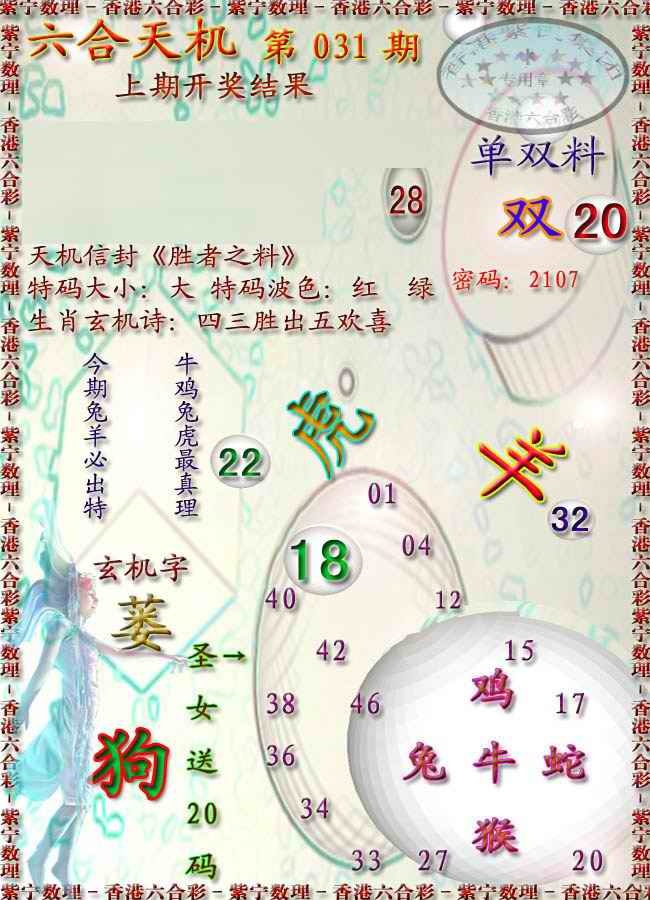 紫宁数理－香港六合彩－紫宁数理－香港六合彩－紫宁数理－香港六合彩
六合天机 第 031 期
上期开奖结果
香港紫色集团
专用章
香港六合彩
单双料
双 20
28
天机信封《胜者之料》
特码大小：大 特码波色：红 绿
密码：2107
生肖玄机诗：四三胜出五欢喜
今期兔羊必出特
牛鸡兔虎最真理
22
虎
羊
32
01
18
04
40
12
玄机字
蒌
圣→
女
送
20
码
狗
42
15
38
46
鸡
17
36
兔 牛 蛇
34
猴
33
27
20
紫宁数理－香港六合彩－紫宁数理－香港六合彩－紫宁数理－香港六合彩